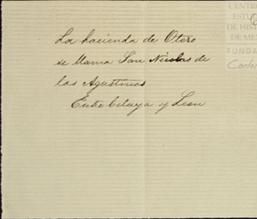 La hacienda de Otero
se llama San Nicolas de
los Agustinos
Entre Celaya y Leon
CENTRO
ESTU
DE HIS
DE ME
FUNDA